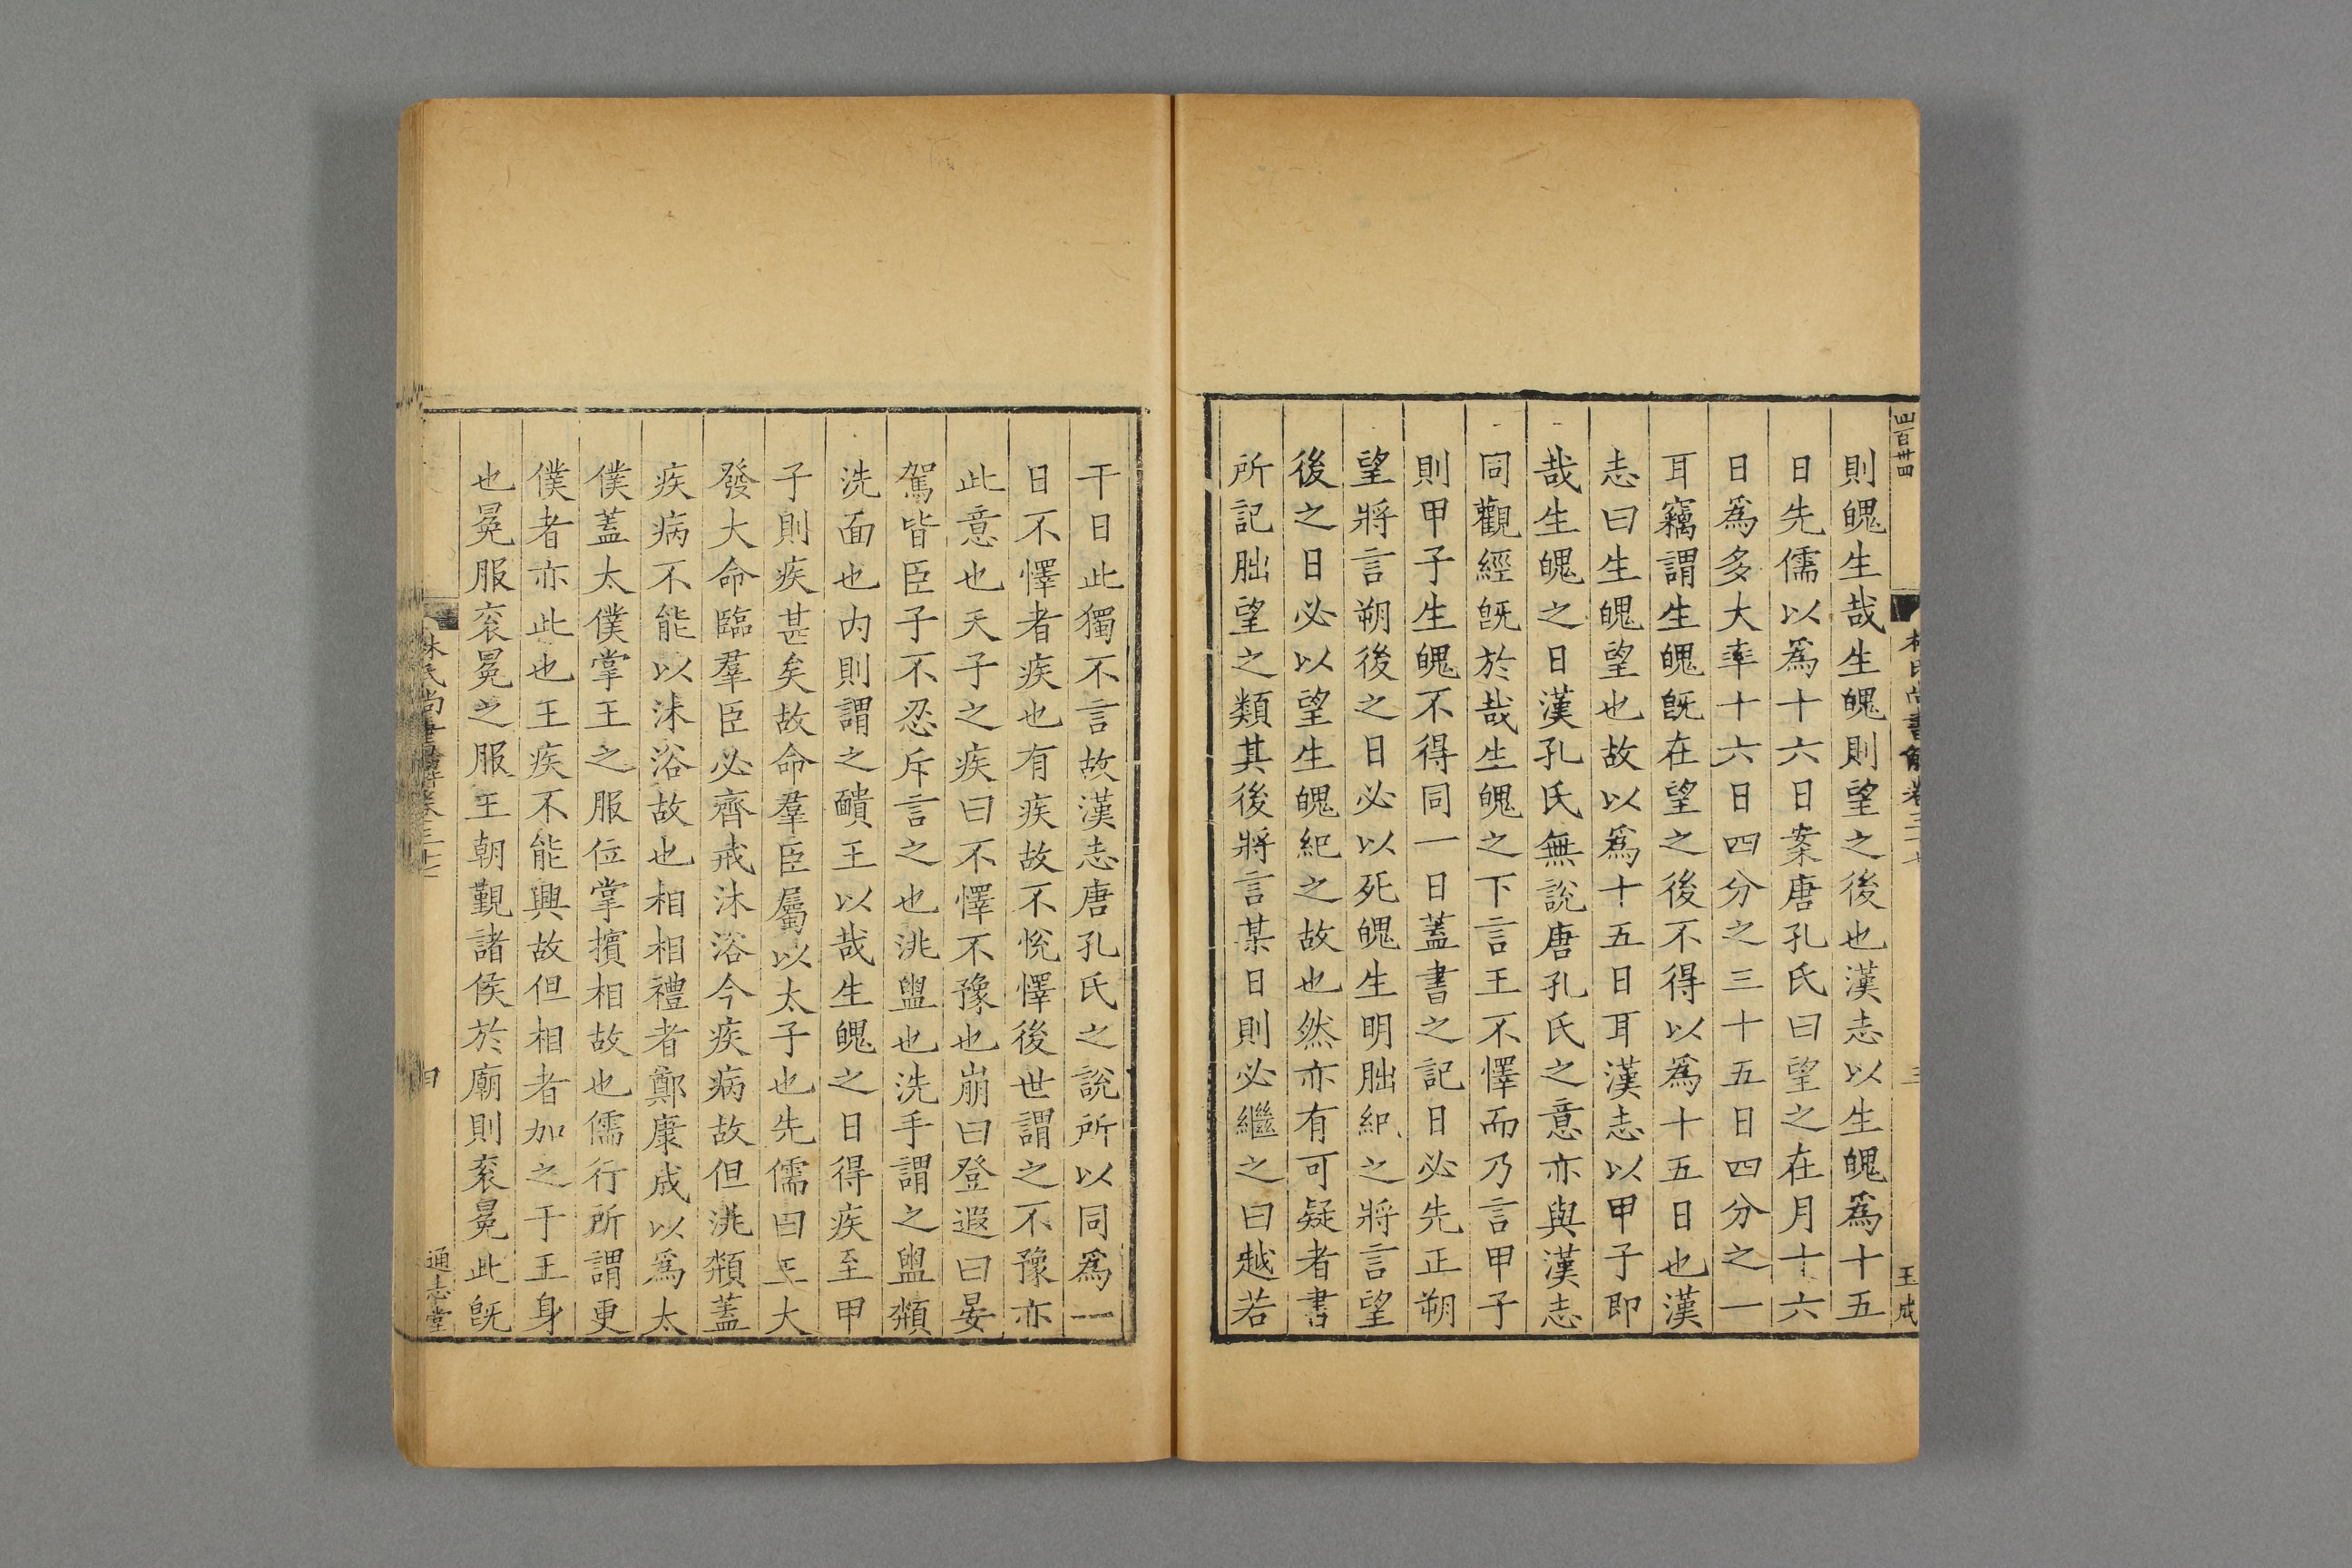 四百卅四
王成
則魄生哉生魄則望之後也漢志以生魄爲十五
日先儒以爲十六日案唐孔氏曰望之在月十六
日爲多大率十六日四分之三十五日四分之一
耳竊謂生魄旣在望之後不得以爲十五日也漢
志曰生魄望也故以爲十五日耳漢志以甲子即
哉生魄之日漢孔氏無說唐孔氏之意亦與漢志
同觀經旣於哉生魄之下言王不懌而乃言甲子
則甲子生魄不得同一日蓋書之記日必先正朔
望將言朔後之日必以死魄生明朏紀之將言望
後之日必以望生魄紀之故也然亦有可疑者書
所記朏望之類其後將言某日則必繼之曰越若
干日此獨不言故漢志唐孔氏之說所以同爲一
日不懌者疾也有疾故不悅懌後世謂之不豫亦
此意也天子之疾曰不懌不豫也崩曰登遐曰晏
駕皆臣子不忍斥言之也洮盥也洗手謂之盥頮
洗面也內則謂之靧王以哉生魄之日得疾至甲
子則疾甚矣故命羣臣屬以太子也先儒曰王大
發大命臨羣臣必齊戒沐浴今疾病故但洮頮蓋
疾病不能以沬浴故也相相禮者鄭康成以爲太
僕蓋太僕掌王之服位掌擯相故也儒行所謂更
僕者亦此也王疾不能興故但相者加之于王身
也冕服衮冕之服王朝覲諸侯於廟則衮冕此旣
通志堂